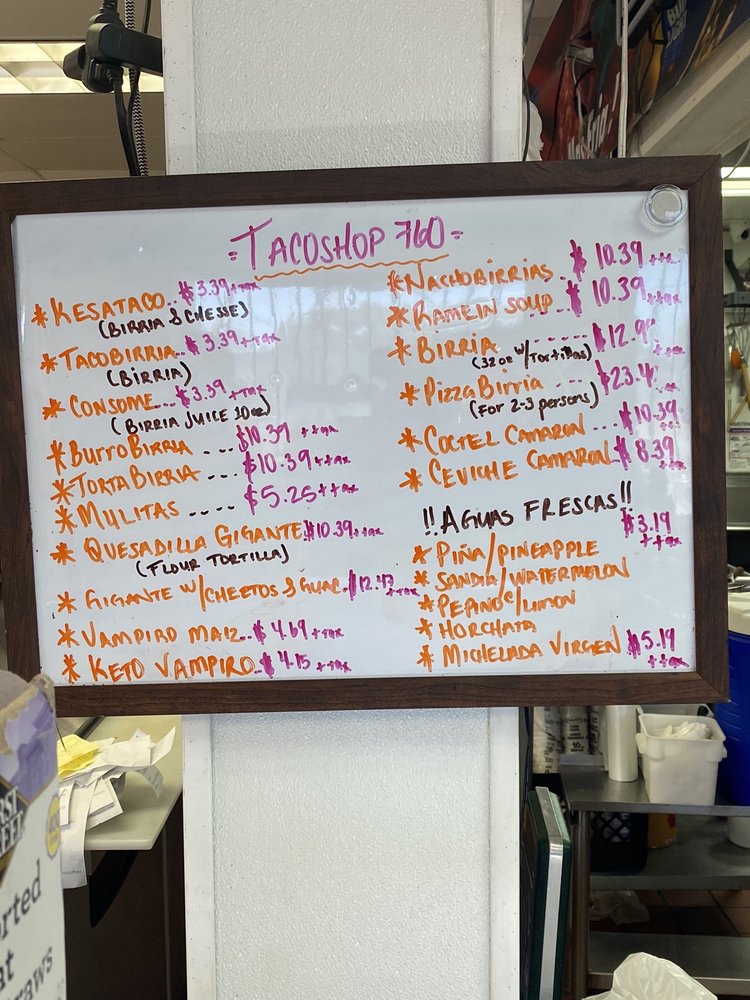 =TACOSHOP 760=
*KESATACO.. $3.39 + tax
(BIRRIA & CHESSE)
*TACOBIRRIA.. $3.39 + tax
(BIRRIA)
*CONSOME... $3.39 + tax
(BIRRIA JUICE 10oz)
*BURROBIRRIA --- $10.39 + tax
*TORTABIRRIA --- $10.39 + tax
*MULITAS ---- $5.25 + tax
*QUESADILLA GIGANTE $10.39 + tax
(FLOUR TORTILLA)
*GIGANTE W/CHEETOS & GUAC. $12.47 + tax
*VAMPIRO MAIZ.. $4.69 + tax
*KETO VAMPIRO.. $4.15 + tax
*NACHOBIRRIAS . $10.39 + tax
*RAMEIN SOUP .. $10.39 + tax
*BIRRIA ----- $12.9
(32oz W/TortillaS)
*PizzaBirria --- $23.4
(For 2-3 persons)
*COCTEL CAMARON ... $10.39 + tax
*CEVICHE CAMARON $8.39 + tax
!!AGUAS FRESCAS!!
$3.19 + tax
*PIÑA/PINEAPPLE
*SANDIA/WATERMELON
*PEPINO C/LIMON
*HORCHATA
*MICHELADA VIRGEN $5.19 + tax